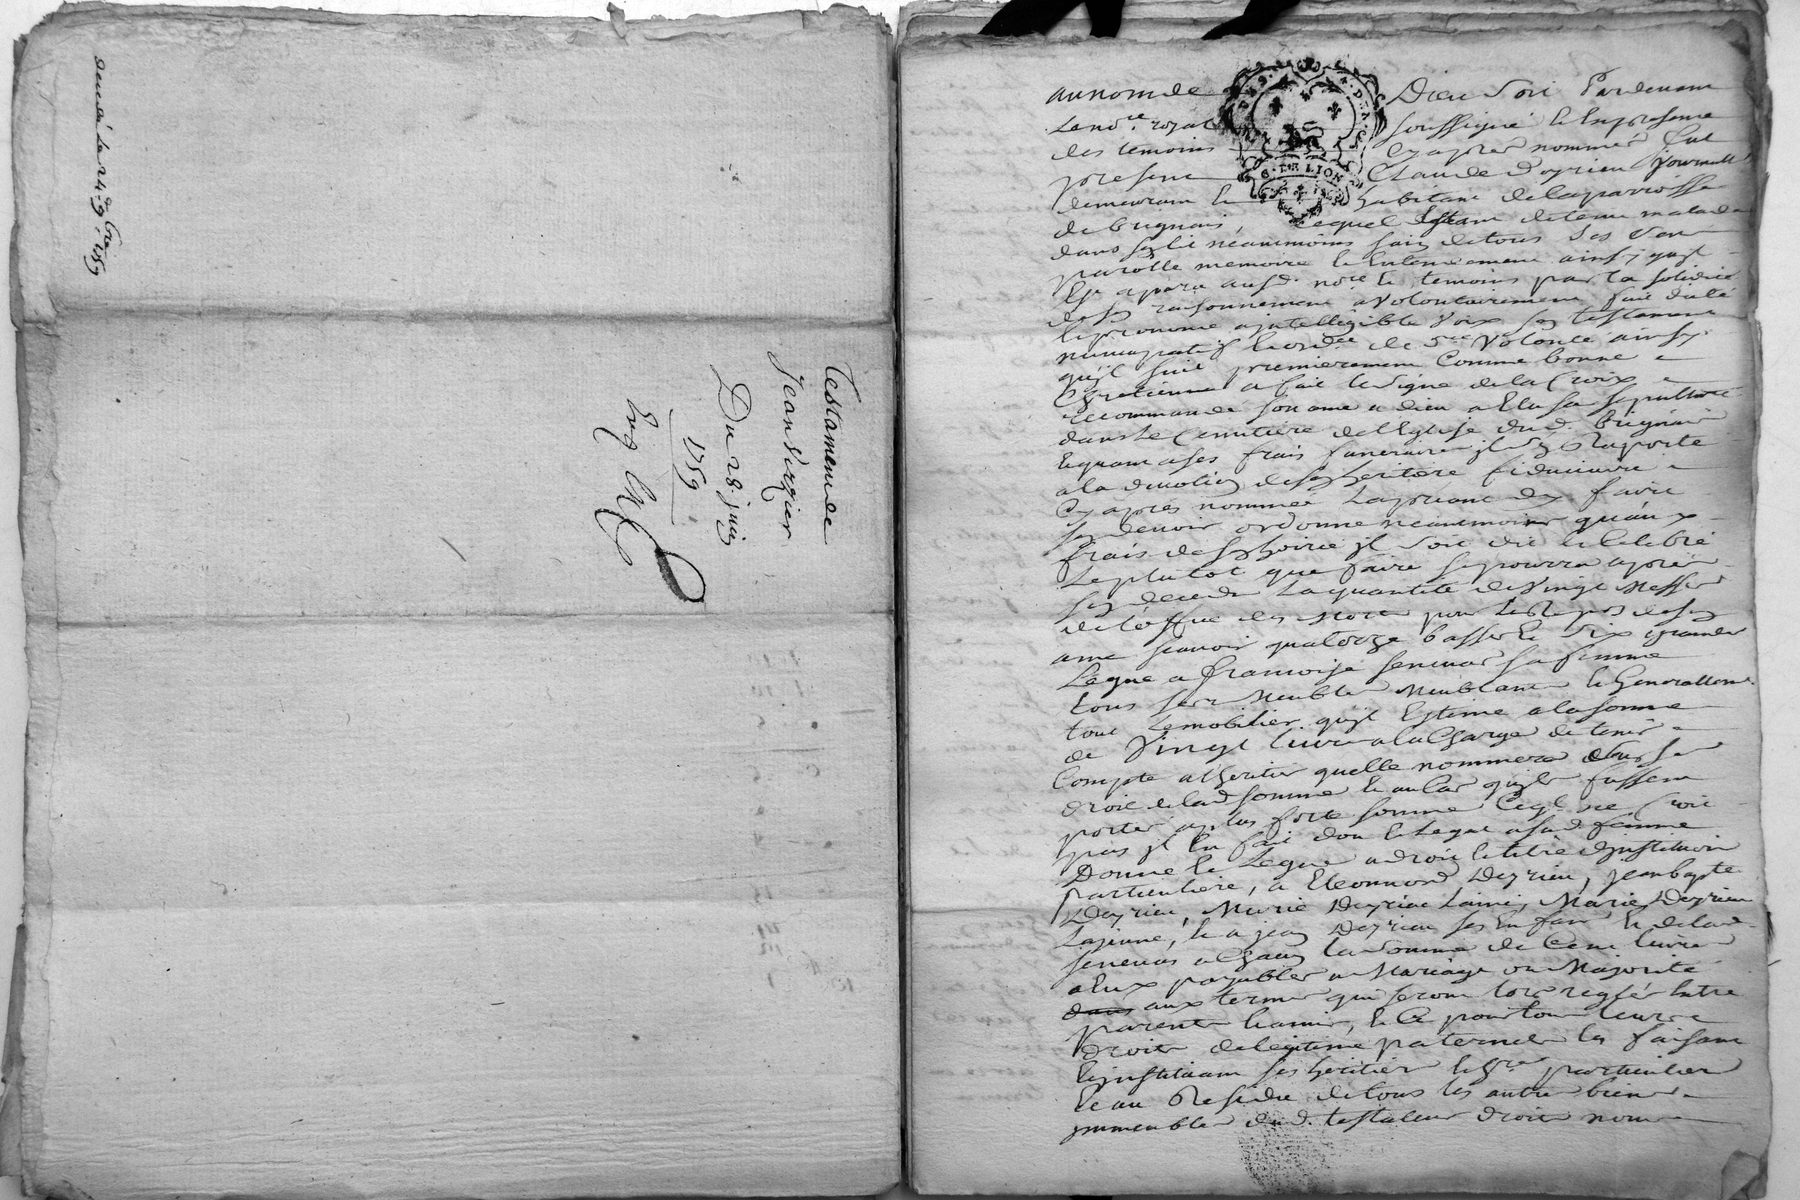 Testament de
Jean Virgier
Du 28 juin
1759
au nom de Dieu soit Pardevant
Le no.re royal soussigné Et En presence
des temoins Cy apres nommés fut
present Claude Deyrieu journallier
demeurant Et habitant de la parroisse
de brignais, Lequel Estant detenu malade
dans son lit neanmoins sain de tous ses sens
parolle memoire Et Entendement ainsy quil
Est aparu aud. no.re Et temoins par la solidité
de son raisonnement a volontairement fait dicté
Et prononcé a jntelligible voix son testament
nuncupatif Et ord.ce de d.re volonté ainsy
quil suit premierement Comme bon
Chretien a fait le signe de la Croix
Recommandé son ame a dieu a Elu sa sepulture
dans le Cemitiere de l'Eglise dud. brignais
Et quant a ses frais funeraires jl s'en Raporte
a la devotion de son heritiere fiduciaire
Cy apres nommée La priant d'en faire
son devoir ordonne neanmoins qu'aux
frais de son hoirie jl soit dit Et Celebré
Le plutot que faire se pourra apres
son deces La quantité de vingt Messes
de l'office des Morts pour Le Repos de son
ame scavoir quatorze basses Et six grandes
Legue a francoise senevas sa femme
tous ses Meubles Meublants Et Generallement
tout Le mobilier quil Estime a la somme
de Vingt livres a la Charge de tenir
Compte a l'heritier quelle nommera
droit de lad somme Et au Cas quils fussent
porter a plus forte somme Ce quil ne Croit
pas jl En fait don Et Legue a sad femme
Donne Et Legue a droit Et titre d'jnstitution
particuliere, a Eleonnord Deyrieu, jean bapte
Deyrieu, Marie Deyrieu L'ainé, Marie Deyrieu
La jeune, Et a jean Deyrieu ses Enfans Et de lad
senevas a Chacun la somme de Cent livres
a Eux payables en Mariage ou Majorité
aux termes qui seront lors reglés Entre
parents Et amis, Et Ce pour tous leurs
droits de legitime paternels les faisant
Et jnstituant ses heritiers particuliers
Et au Residu de tous les autres biens
jmmeubles dud. testateur droits noms